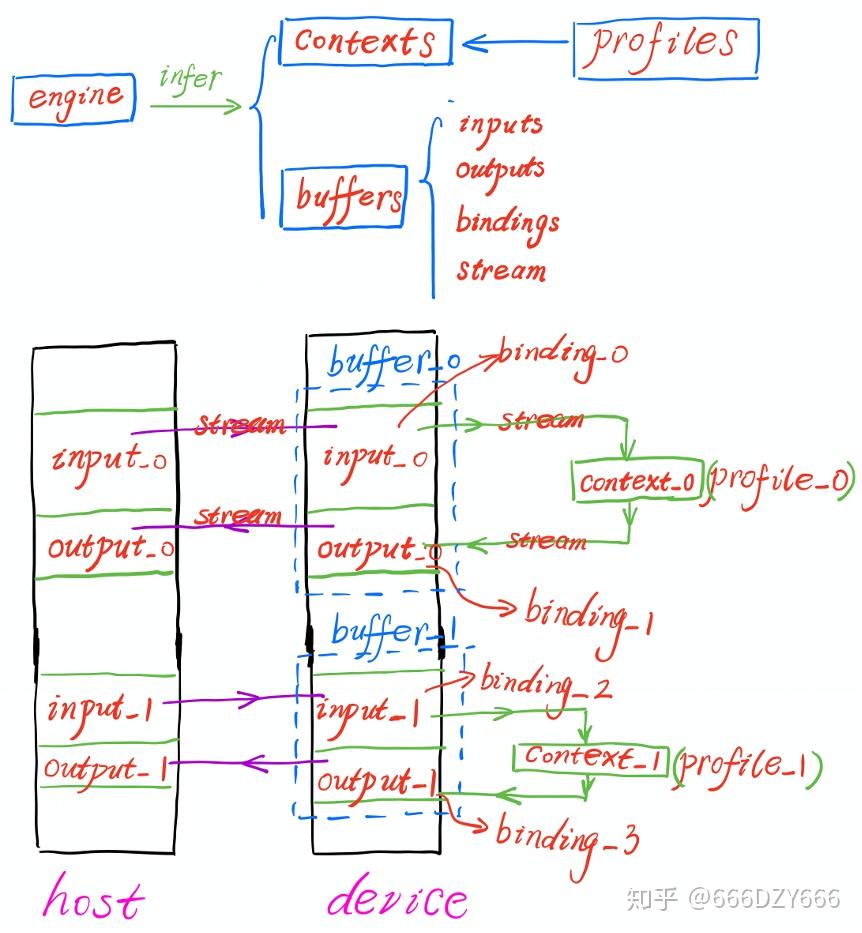 contexts
profiles
engine
infer
inputs
outputs
buffers
bindings
stream
buffer_0
binding_0
stream
stream
input_0
input_0
context_0
(profile_0)
stream
output_0
output_0
stream
binding_1
buffer_1
binding_2
input_1
input_1
context_1
(profile_1)
output_1
output_1
binding_3
host
device
知乎 @666DZY666